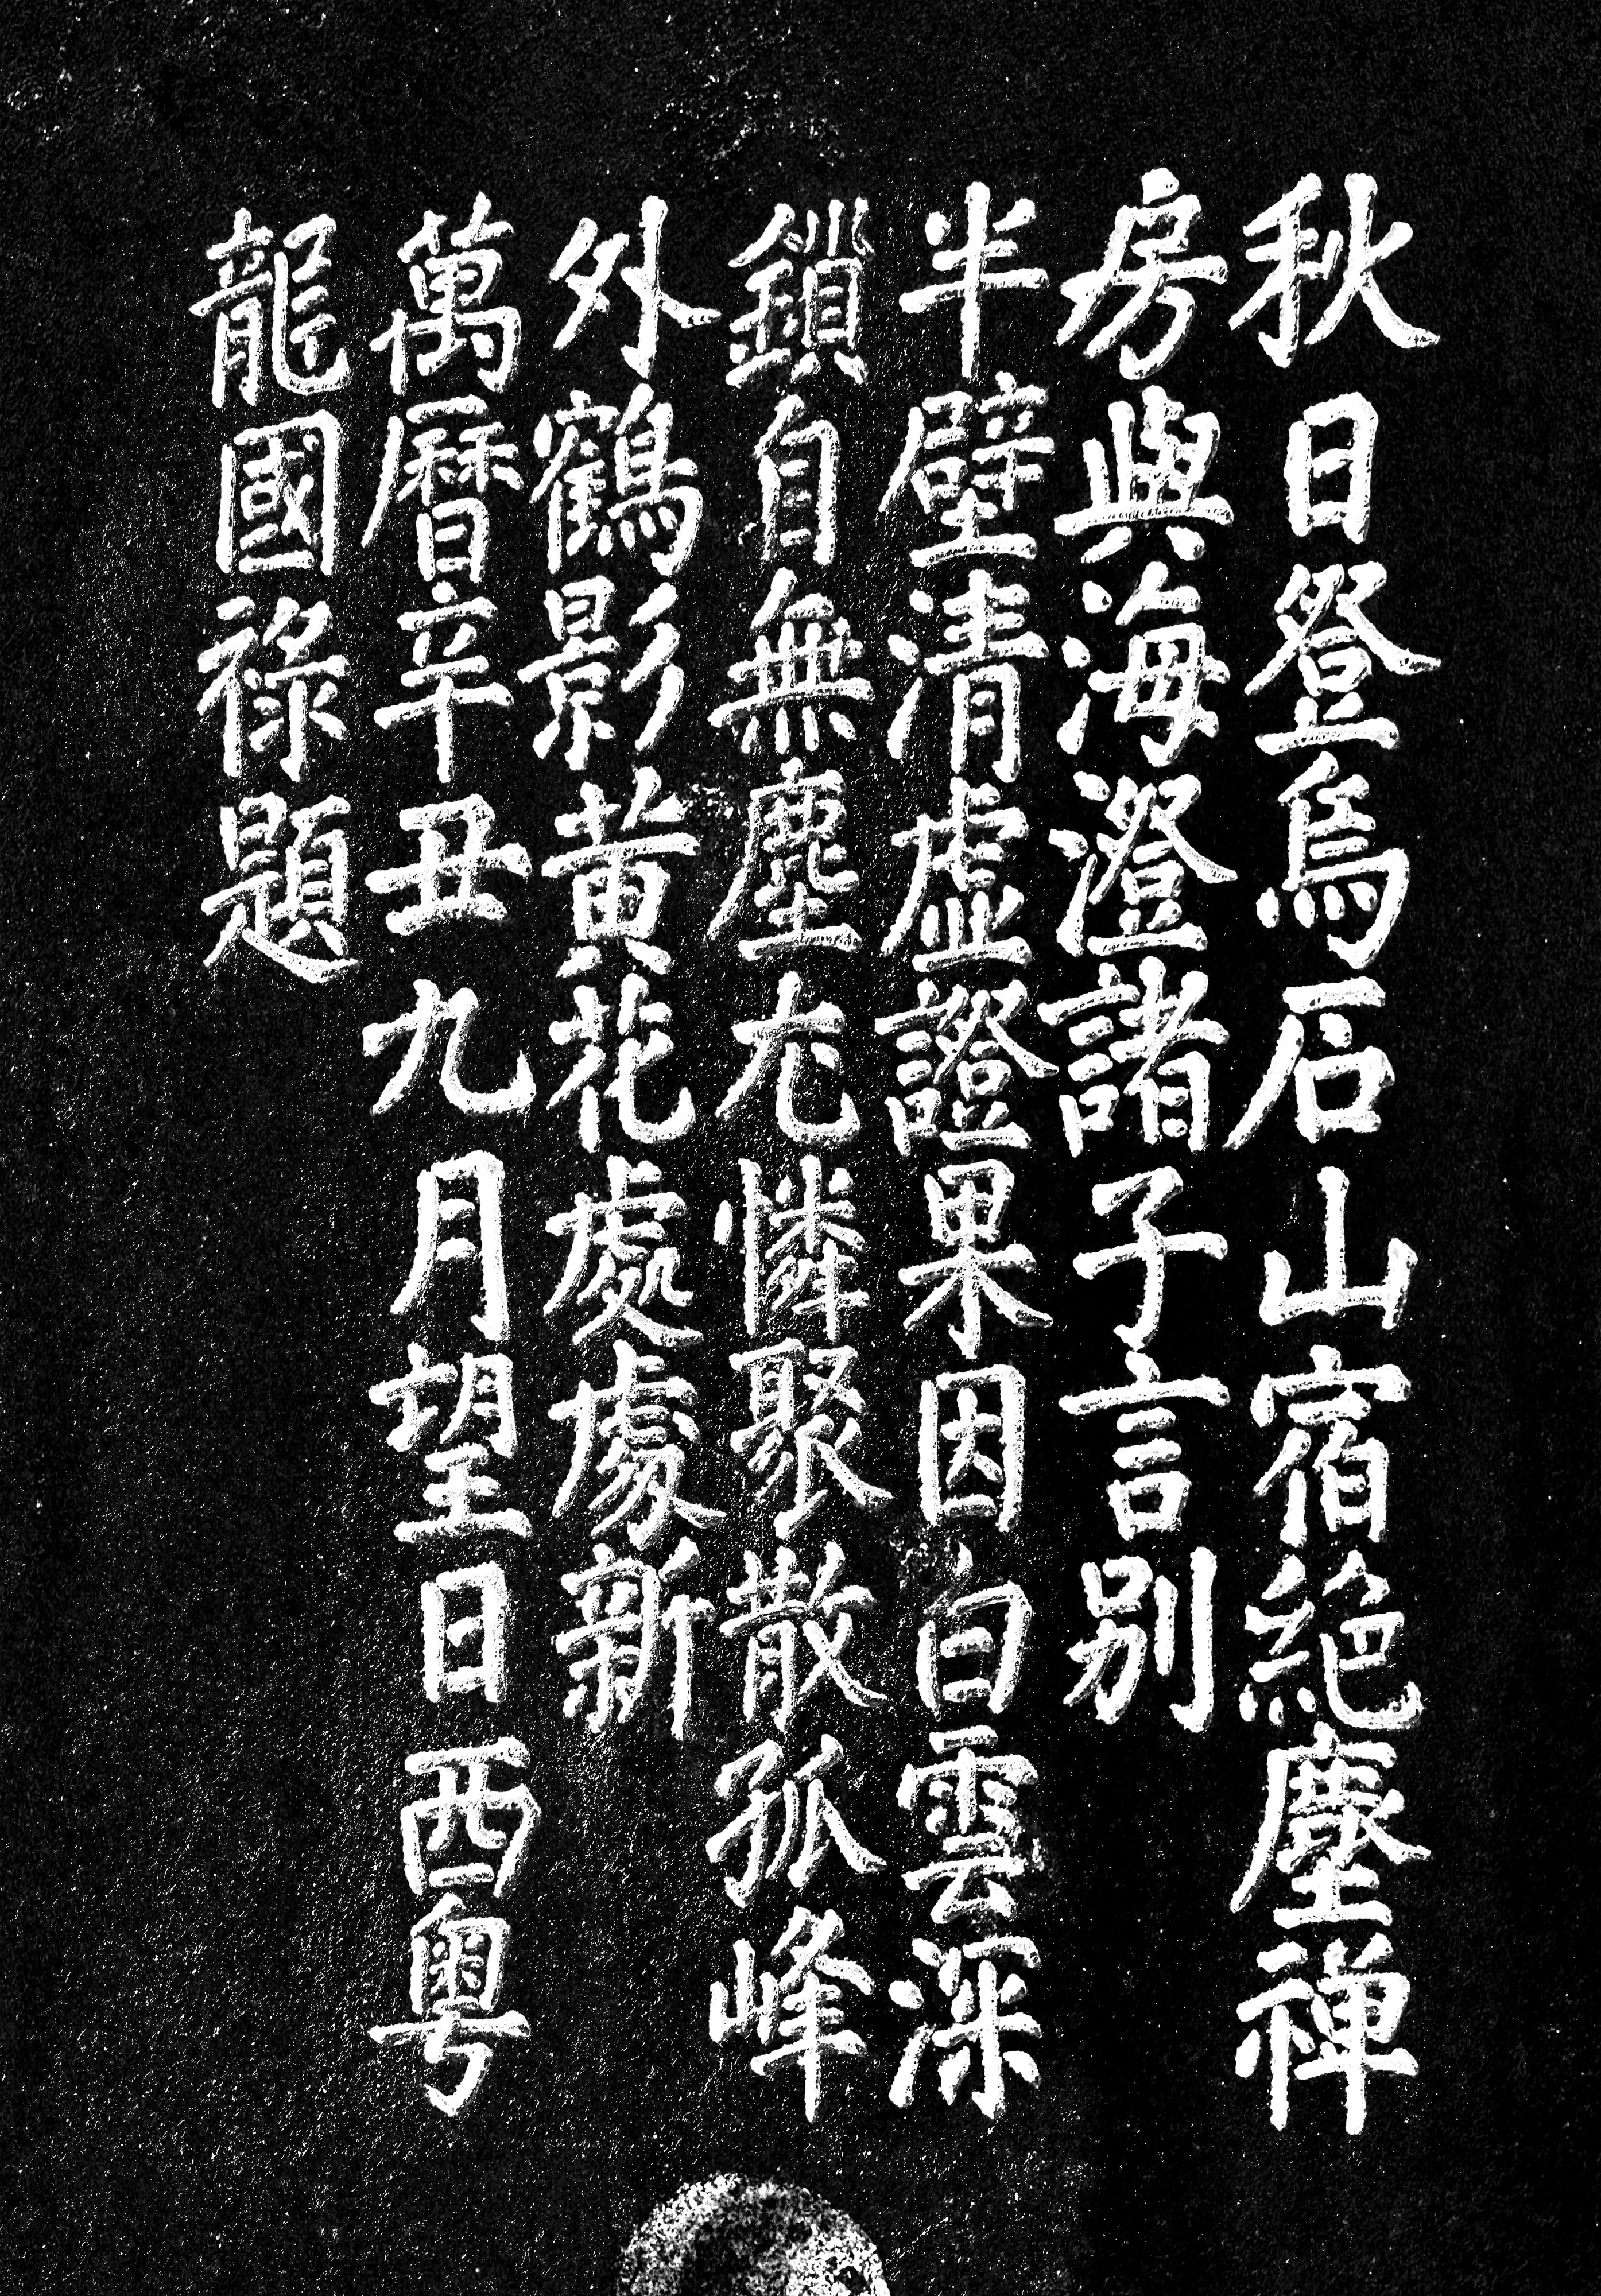 秋日登烏石山宿絕塵禅
房與海澄諸子言别
半壁清虚證果因白雲深
鎖自無塵尤憐聚散孤峰
外鶴影黄花處處新
萬曆辛丑九月望日西粤
龍國禄題